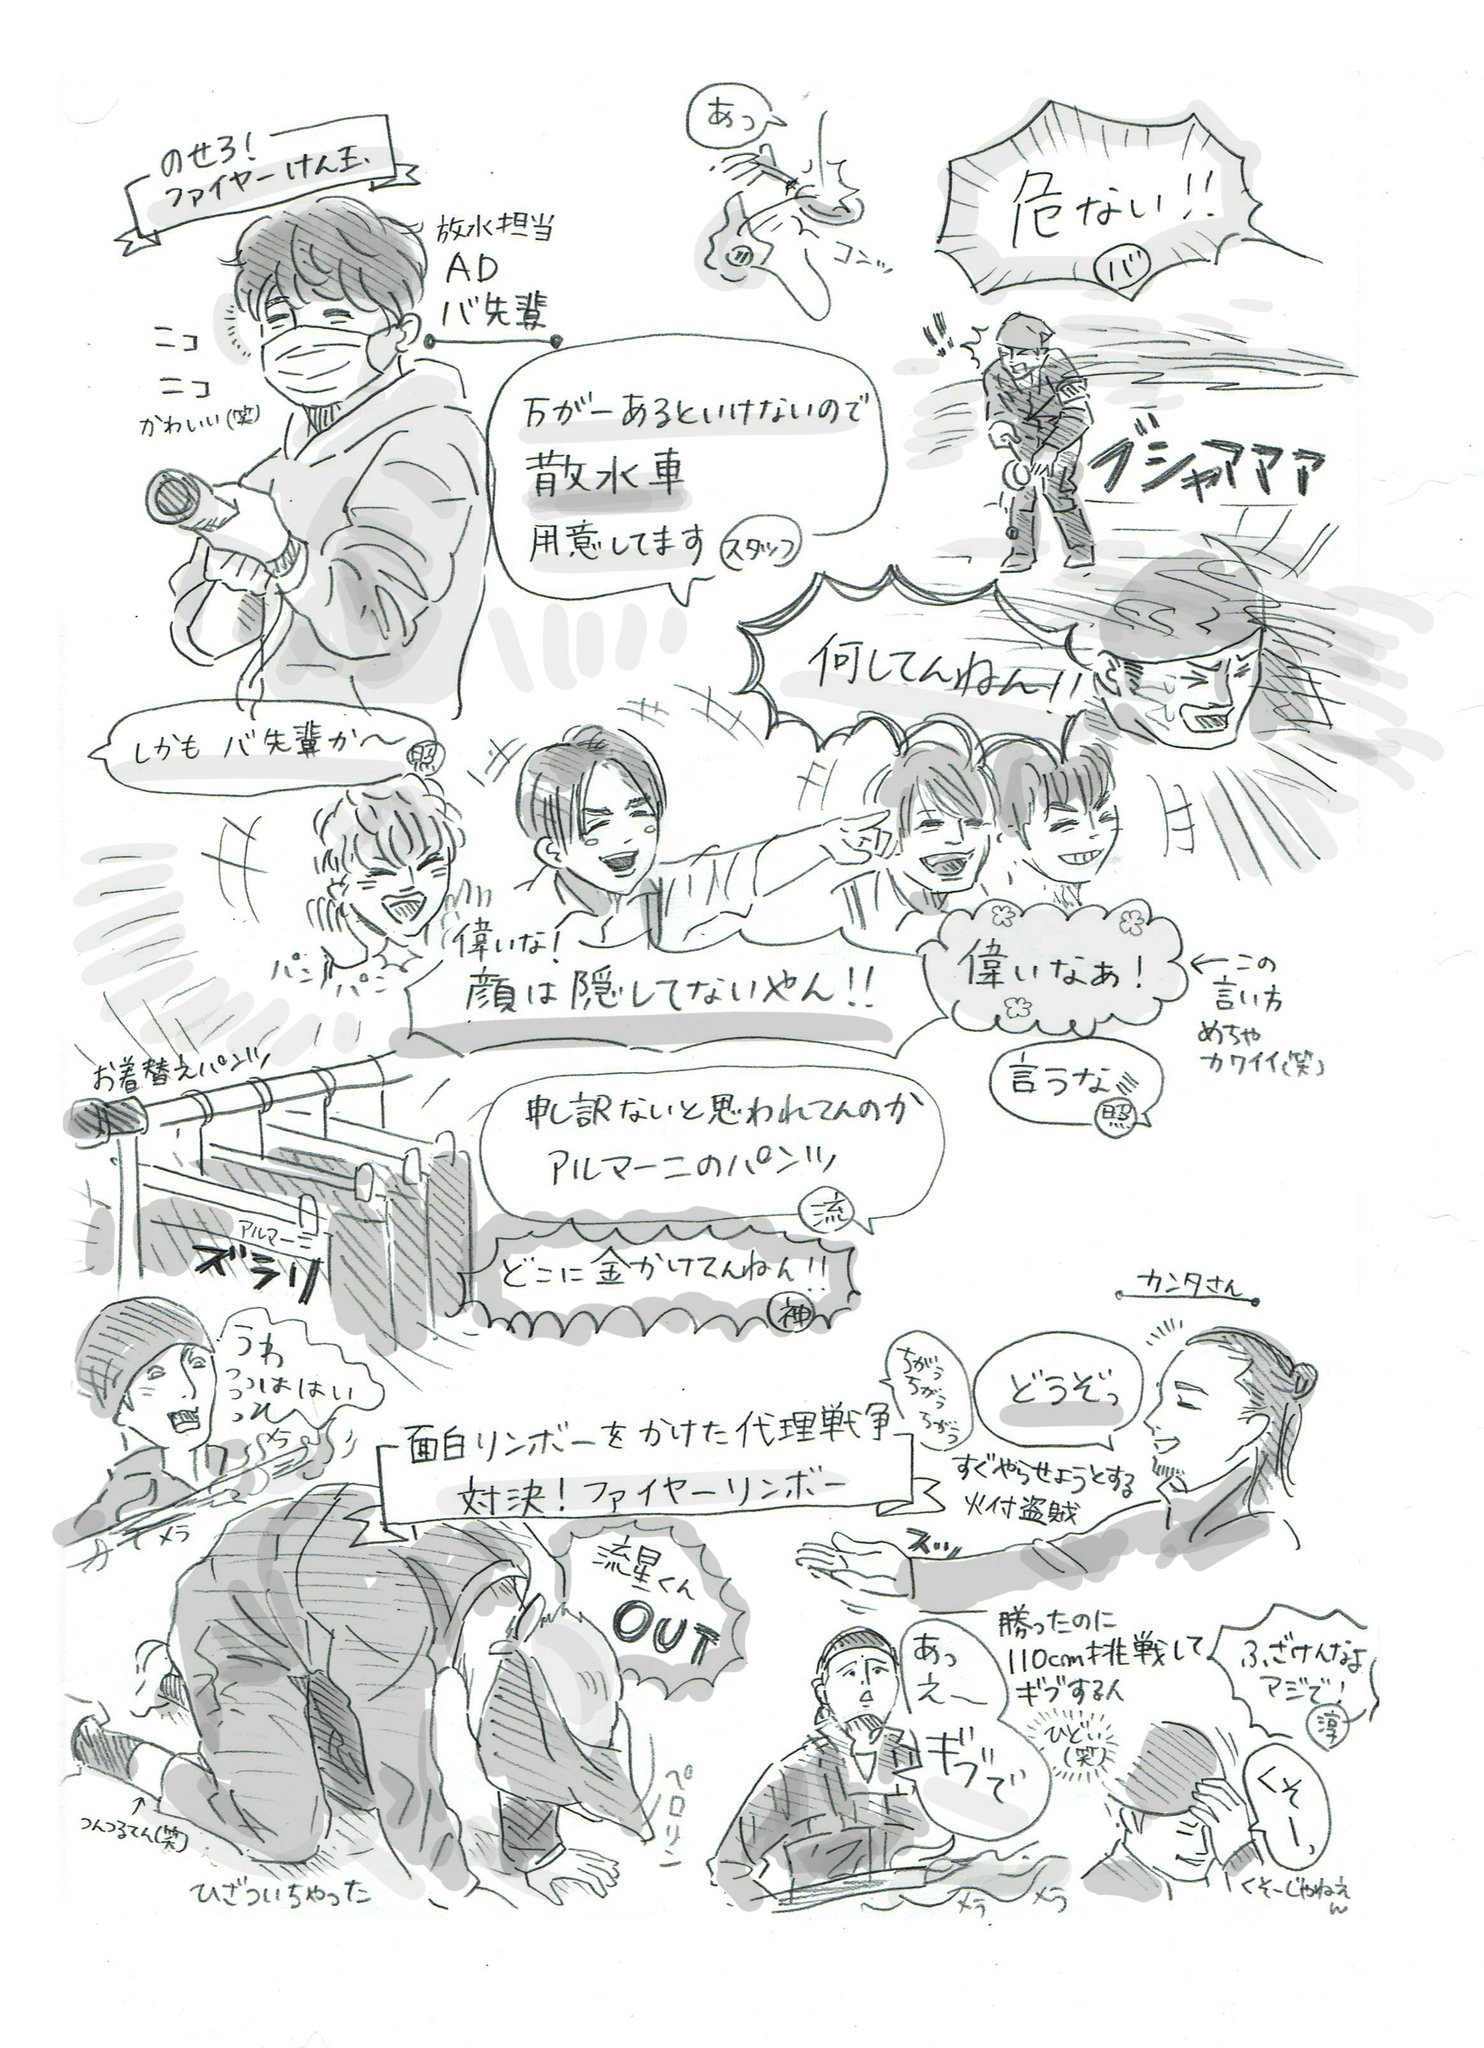 のせろ!
ファイヤーけん玉
放水担当
AD
バ先輩
ニコ
ニコ
かわいい(笑)
あっ
コンッ
危ない!!
バ
ブシャアアア
万が一あるといけないので
散水車
用意してます
スタッフ
何してんねん!!
しかもバ先輩か〜
照
パン
パン
偉いな!
顔は隠してないやん!!
偉いなぁ!
←この
言い方
めちゃ
カワイイ(笑)
言うな
照
お着替えパンツ
アルマーニ
ズラリ
申し訳ないと思われてんのか
アルマーニのパンツ
流
どこに金かけてんねん!!
神
うわ
メラ
メラ
面白リンボーをかけた代理戦争
対決!ファイヤーリンボー
カンタさん
どうぞっ
ちがう
ちがう
ちがう
すぐやらせようとする
火付盗賊
スッ
流星くん
OUT
ペロリン
つんつるてん(笑)
ひざついちゃった
勝ったのに
110cm挑戦して
ギブする人
あっ
え〜
ギブで
ひどい
(笑)
ふざけんなよ
マジで!
淳
くそーっ
くそーじゃねえ
ん
メラ
メラ